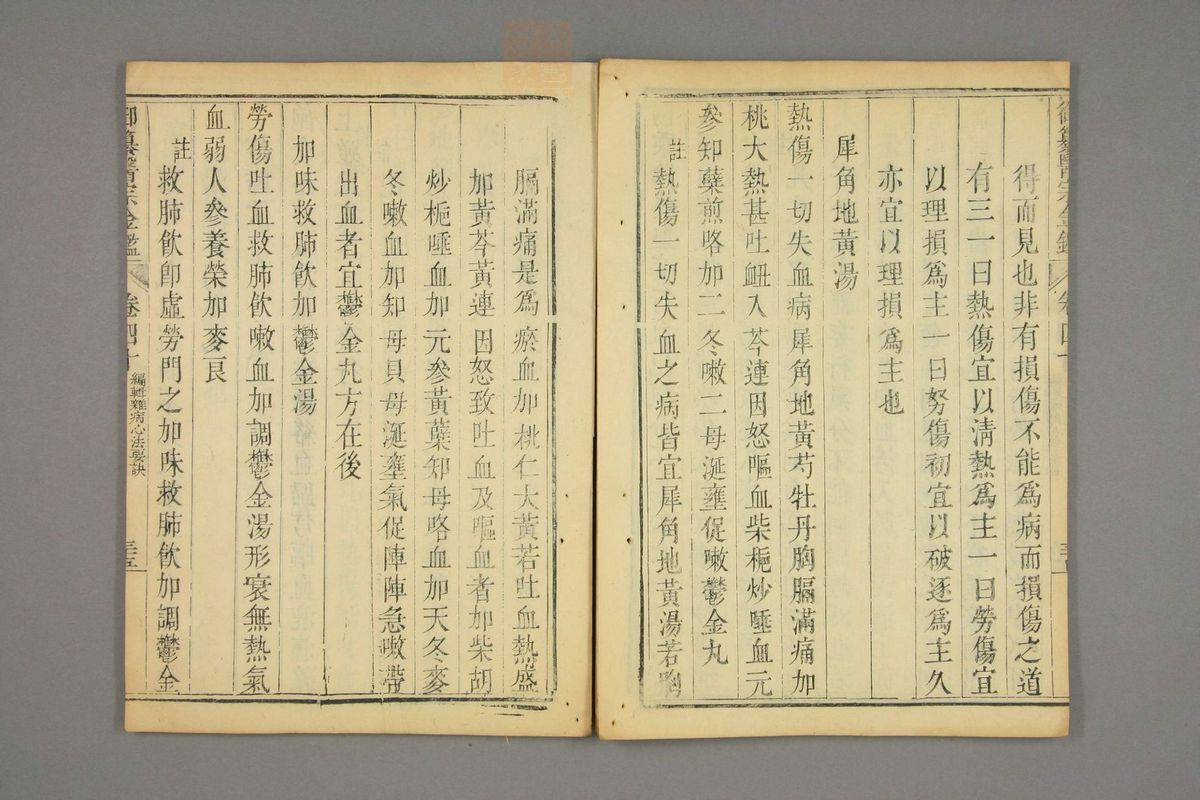 得而見也非有損傷不能爲病而損傷之道
有三一曰熱傷宜以淸熱爲主一曰勞傷宜
以理損爲主一曰努傷初宜以破逐爲主久
亦宜以理損爲主也
犀角地黃湯
熱傷一切失血病犀角地黃芍牡丹胸膈滿痛加
桃大熱甚吐衄入芩連因怒嘔血柴梔炒唾血元
參知蘗煎咯加二冬嗽二母涎壅促嗽鬱金丸
註熱傷一切失血之病皆宜犀角地黃湯若胸
膈滿痛是爲瘀血加桃仁大黃若吐血熱盛
加黃芩黃連因怒致吐血及嘔血者加柴胡
炒梔唾血加元參黃蘗知母咯血加天冬麥
冬嗽血加知母貝母涎壅氣促陣陣急嗽帶
出血者宜鬱金丸方在後
加味救肺飮加鬱金湯
勞傷吐血救肺飮嗽血加調鬱金湯形衰無熱氣
血弱人參養榮加麥良
註救肺飮卽虛勞門之加味救肺飮加調鬱金
御纂醫宗金鑑 卷四十 編輯雜病心法要訣